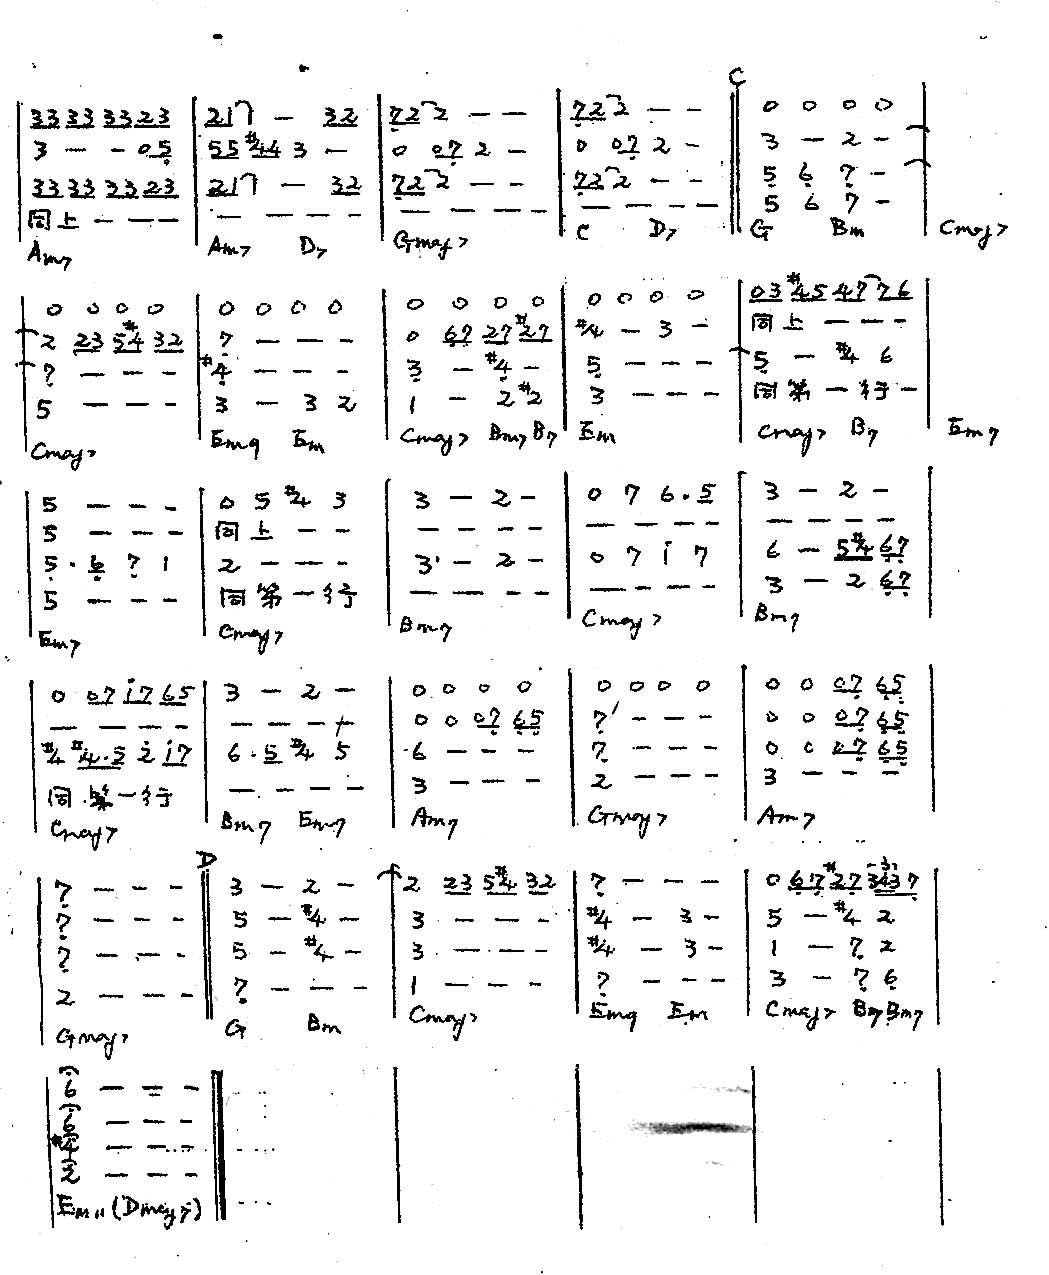 C
| 33 33 33 23 | 217 — 32 | 72 2 — — | 72 2 — — ‖ 0 0 0 0 |
| 3 — — 05 | 55 #44 3 — | 0 07 2 — | 0 07 2 — ‖ 3 — 2 — |
| 33 33 33 23 | 217 — 32 | 72 2 — — | 72 2 — — ‖ 5 6 7 — |
| 同上 — — — | — — — — | — — — — | — — — — ‖ 5 6 7 — |
Am7 Am7 D7 Gmaj7 C D7 G Bm Cmaj7
| 0 0 0 0 | 0 0 0 0 | 0 0 0 0 | 0 0 0 0 | 03 #45 47 76 |
| 2 23 5#4 32 | 7 — — — | 0 67 27 #27 | #4 — 3 — | 同上 — — — |
| 7 — — — | #4 — — — | 3 — #4 — | 5 — — — | 5 — #4 6 |
| 5 — — — | 3 — 3 2 | 1 — 2 #2 | 3 — — — | 同第一行 — |
Cmaj7 Em9 Em Cmaj7 Bm7 B7 Em Cmaj7 B7 Em7
| 5 — — — | 0 5 #4 3 | 3 — 2 — | 0 7 6. 5 | 3 — 2 — |
| 5 — — — | 同上 — — | — — — — | — — — — | — — — — |
| 5. 6 7 1 | 2 — — — | 3 — 2 — | 0 7 i 7 | 6 — 5#4 67 |
| 5 — — — | 同第一行 | — — — — | — — — — | 3 — 2 67 |
Em7 Cmaj7 Bm7 Cmaj7 Bm7
| 0 07 i7 65 | 3 — 2 — | 0 0 0 0 | 0 0 0 0 | 0 0 07 65 |
| — — — — | — — — — | 0 0 07 65 | 7 — — — | 0 0 07 65 |
| #4 #4.5 2 i7 | 6. 5 #4 5 | 6 — — — | 7 — — — | 0 0 07 65 |
| 同第一行 | — — — — | 3 — — — | 2 — — — | 3 — — — |
Cmaj7 Bm7 Em7 Am7 Gmaj7 Am7
D
| 7 — — — ‖ 3 — 2 — | 2 23 5#4 32 | 7 — — — | 0 67 #27 3437 |
| 7 — — — ‖ 5 — #4 — | 3 — — — | #4 — 3 — | 5 — #4 2 |
| 7 — — — ‖ 5 — #4 — | 3 — — — | #4 — 3 — | 1 — 7 2 |
| 2 — — — ‖ 7 — — — | 1 — — — | 7 — — — | 3 — 7 6 |
Gmaj7 G Bm Cmaj7 Em9 Em Cmaj7 Bm7 Bm7
| 6 — — — ‖
| 6 — — — ‖
| #4 — — — ‖
| 2 — — — ‖
Em11 (Dmaj7)